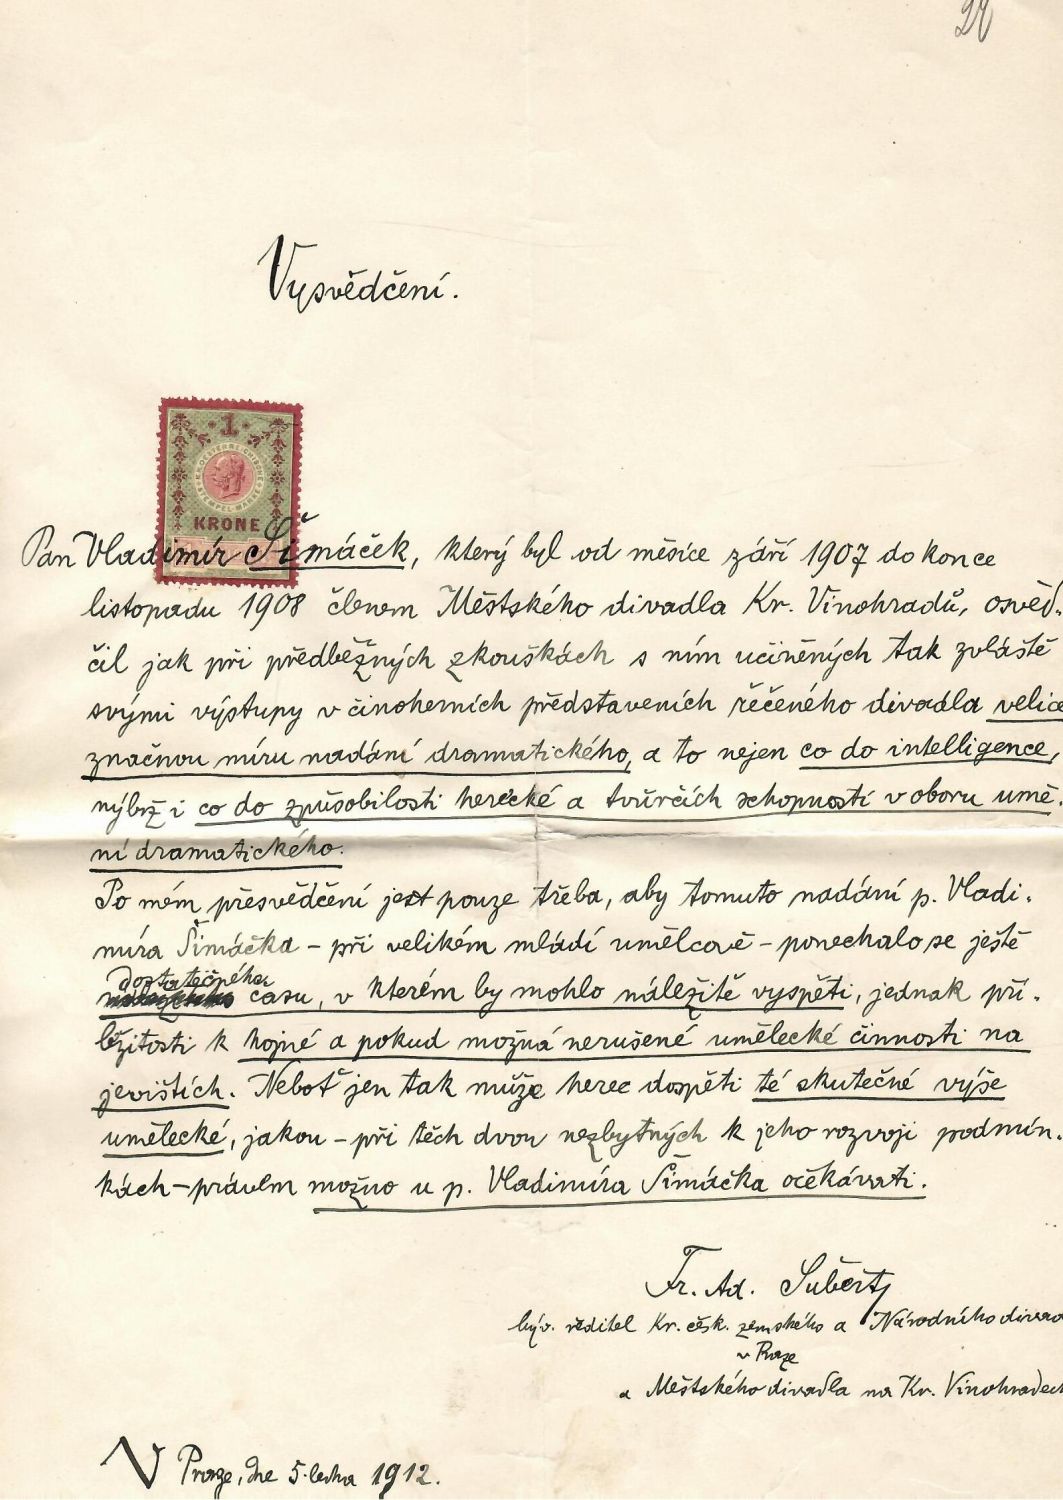 22
Vysvědčení.
1
K.K. OESTERREICHISCHE
STEMPEL-MARKE
KRONE
Pan Vladimír Šimáček, který byl od měsíce září 1907 do konce
listopadu 1908 členem Městského divadla Kr. Vinohradů, osvěd-
čil jak při předběžných zkouškách s ním učiněných tak zvláště
svými výstupy v činoherních představeních řečeného divadla velice
značnou míru nadání dramatického, a to nejen co do intelligence,
nýbrž i co do způsobilosti herecké a tvůrčích schopností v oboru umě-
ní dramatického.
Po mém přesvědčení jest pouze třeba, aby tomuto nadání p. Vladi-
míra Šimáčka – při velikém mládí umělcově – ponechalo se ještě
dostatečného
času, v kterém by mohlo náležitě vyspěti, jednak pří-
ležitosti k hojné a pokud možná nerušené umělecké činnosti na
jevištích. Neboť jen tak může herec dospěti té skutečné výše
umělecké, jakou – při těch dvou nezbytných k jeho rozvoji podmín-
kách – právem možno u p. Vladimíra Šimáčka očekávati.
Fr. Ad. Šubert,
býv. ředitel Kr. česk. zemského a Národního divad
v Praze
a Městského divadla na Kr. Vinohradech
V Praze, dne 5. ledna 1912.